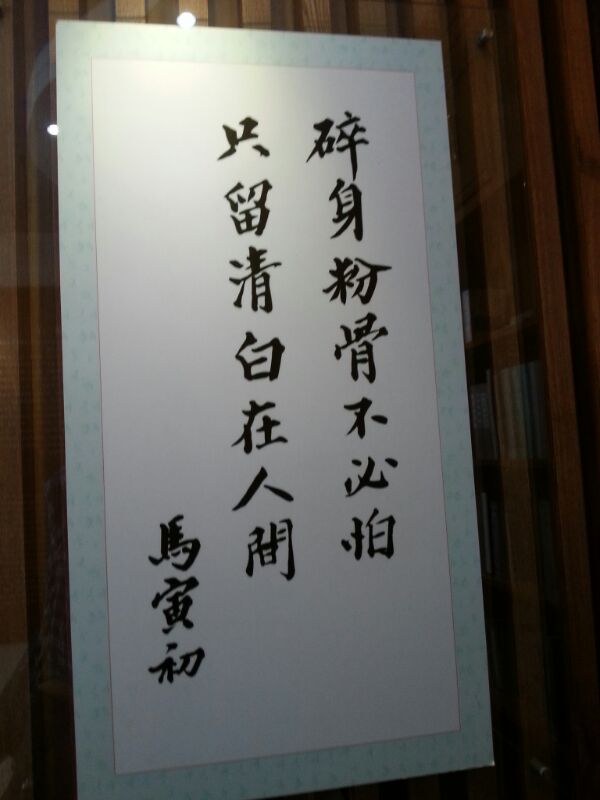 碎身粉骨不必怕
只留清白在人間
馬寅初